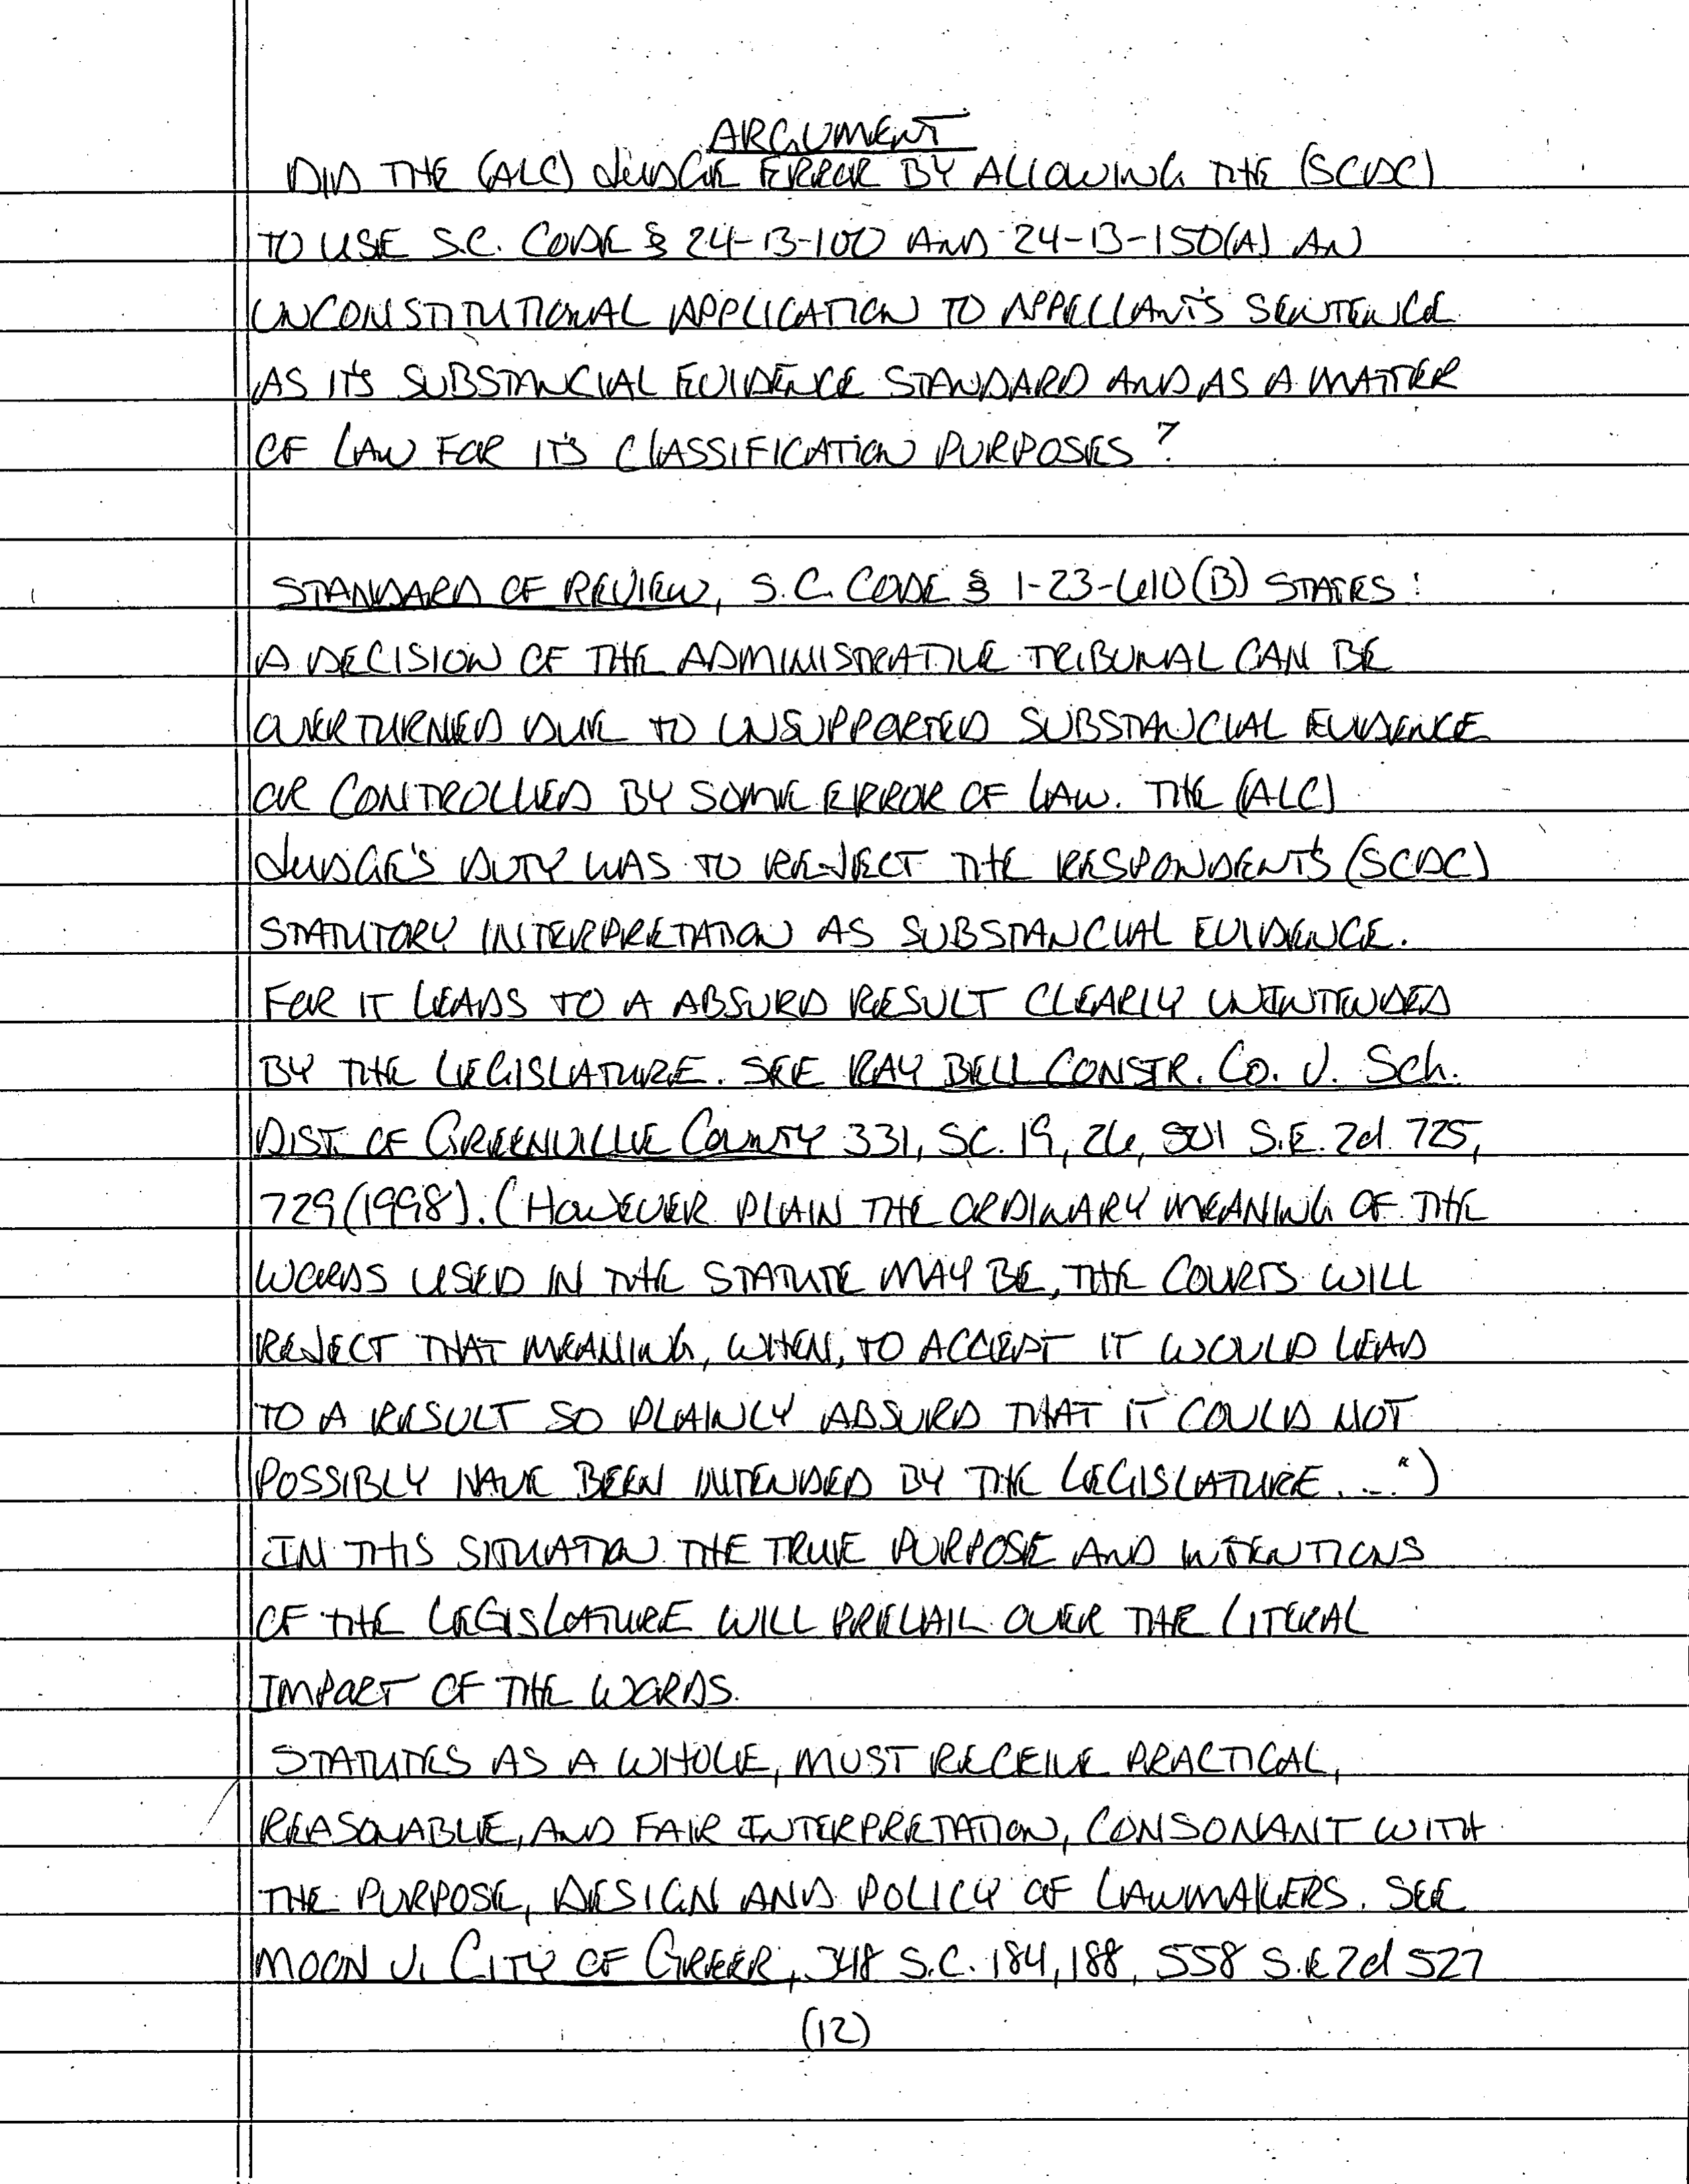 ARGUMENT
DID THE (ALC) JUDGE ERROR BY ALLOWING THE (SCDC)
TO USE S.C. CODE § 24-13-100 AND 24-13-150(A) AN
UNCONSTITUTIONAL APPLICATION TO APPELLANT'S SENTENCE
AS IT'S SUBSTANCIAL EVIDENCE STANDARD AND AS A MATTER
OF LAW FOR IT'S CLASSIFICATION PURPOSES?
STANDARD OF REVIEW, S.C. CODE § 1-23-610(B) STATES:
A DECISION OF THE ADMINISTRATIVE TRIBUNAL CAN BE
OVERTURNED DUE TO UNSUPPORTED SUBSTANCIAL EVIDENCE
OR CONTROLLED BY SOME ERROR OF LAW. THE (ALC)
JUDGE'S DUTY WAS TO REJECT THE RESPONDENT'S (SCDC)
STATUTORY INTERPRETATION AS SUBSTANCIAL EVIDENCE.
FOR IT LEADS TO A ABSURD RESULT CLEARLY UNINTENDED
BY THE LEGISLATURE. SEE RAY BELL CONSTR. CO. V. Sch.
DIST. OF GREENVILLE COUNTY 331, SC. 19, 26, 501 S.E. 2d. 725,
729 (1998). (HOWEVER PLAIN THE ORDINARY MEANING OF THE
WORDS USED IN THE STATUTE MAY BE, THE COURTS WILL
REJECT THAT MEANING, WHEN, TO ACCEPT IT WOULD LEAD
TO A RESULT SO PLAINLY ABSURD THAT IT COULD NOT
POSSIBLY HAVE BEEN INTENDED BY THE LEGISLATURE...")
IN THIS SITUATION THE TRUE PURPOSE AND INTENTIONS
OF THE LEGISLATURE WILL PREVAIL OVER THE LITERAL
IMPORT OF THE WORDS.
STATUTES AS A WHOLE, MUST RECEIVE PRACTICAL,
REASONABLE, AND FAIR INTERPRETATION, CONSONANT WITH
THE PURPOSE, DESIGN AND POLICY OF LAWMAKERS. SEE
MOON V. CITY OF GREER, 348 S.C. 184, 188, 558 S.E 2d 527
(12)